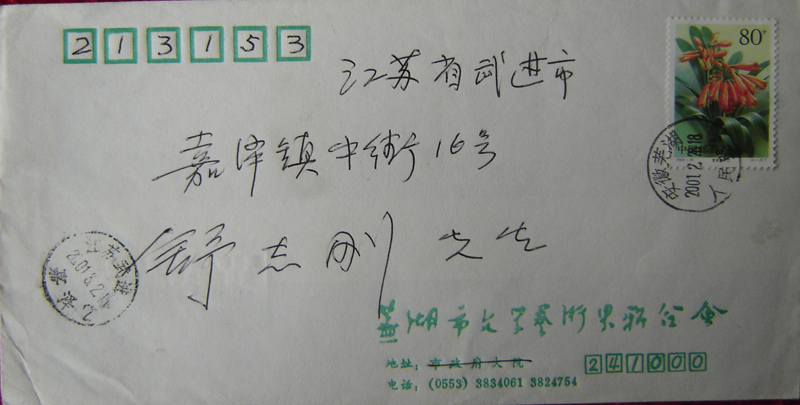 213153
80分
江苏省武进市
嘉泽镇中街16号
舒志刚 先生
安徽芜湖
2001.2.28.18
人民路
江苏武进
芜湖市文学艺术界联合会
地址：市政府大院
241000
电话：(0553) 3834061 3824754